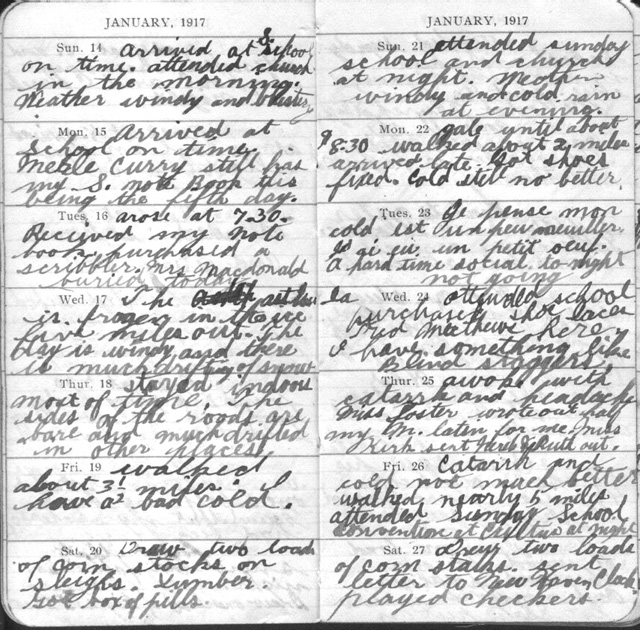 JANUARY, 1917
Sun. 14 Arrived at S. School
on time. attended church
in the morning.
Weather windy and
Mon. 15 Arrived at
School on time.
Merle Curry still has
my S. note Book this
being the fifth day.
Tues. 16 arose at 7-30.
Recieved my note
book, purchased a
scribbler. Mrs. Macdonald
buried today
Wed. 17 The
is frozen in the ice
five miles out. The
day is windy and there
is much drifting of snow
Thur. 18 stayed indoors
most of time. The
sides of the roads are
bare and much drifted
in other places
Fri. 19 walked
about 3½ miles. I
have a bad cold.
Sat. 20 Drew two loads
of corn stocks on
sleighs. Lumber.
Got box of pills.
JANUARY, 1917
Sun. 21 attended sunday
school and church
at night. Weather
windy and cold rain
at evening.
Mon. 22 gale until about
8-30 walked about 2½ miles
arrived late. Got shoes
fixed. Cold still no better.
Tues. 23 Je pense mon
cold est un peu meuiller.
un petit oeuf.
A hard time social to night
not going
Wed. 24 attended school
purchased shoe laces
Fred Matthews here
I have something like
Blind staggers
Thur. 25 awoke with
catarrh and headache
Miss Foster wrote out half
my M. laten for me. Miss
Kirk sent Jared & Ruth out.
Fri. 26 Catarrh and
cold not much better
walked nearly 5 miles
attended Sunday School
convention at at night
Sat. 27 Drew two loads
of corn stalks. sent
letter to New Haven Clock
played checkers.